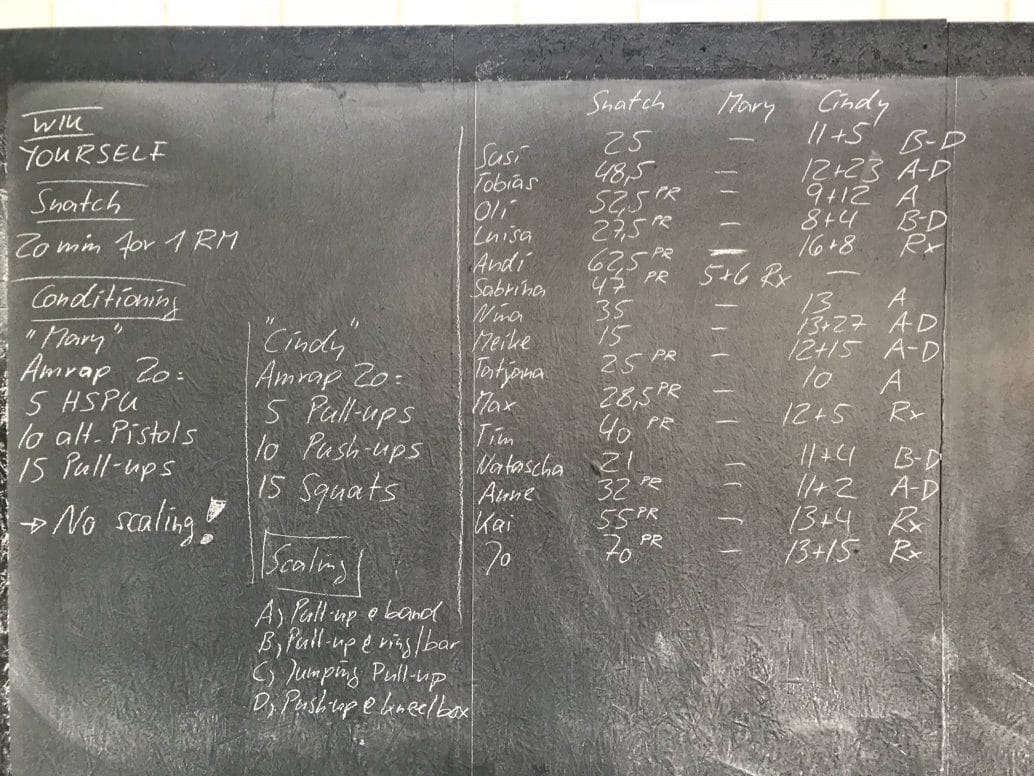 WIN
YOURSELF
Snatch
20 min for 1 RM
Conditioning
"Mary"
Amrap 20:
5 HSPU
10 alt. Pistols
15 Pull-ups
→ No scaling!
"Cindy"
Amrap 20:
5 Pull-ups
10 Push-ups
15 Squats
Scaling
A) Pull-up @ band
B) Pull-up @ ring/bar
C) Jumping Pull-up
D) Push-up @ knee/box
Snatch Mary Cindy
Susi 25 — 11+5 B-D
Tobias 48,5 — 12+23 A-D
Oli 52,5 PR — 9+12 A
Luisa 27,5 PR — 8+4 B-D
Andi 62,5 PR — 16+8 Rx
Sabrina 47 PR 5+6 Rx —
Nina 35 — 13 A
Meike 15 — 13+27 A-D
Tatjana 25 PR — 12+15 A-D
Max 28,5 PR — 10 A
Tim 40 PR — 12+5 Rx
Natascha 21 — 11+4 B-D
Anne 32 PR — 11+2 A-D
Kai 55 PR — 13+4 Rx
Jo 70 PR — 13+15 Rx